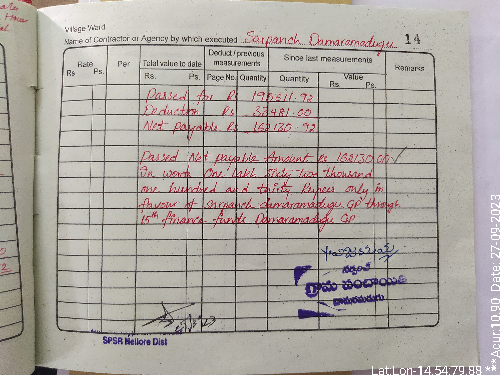 Village Ward
Name of Contractor or Agency by which executed Sarpanch Damaramadugu 14
Rate
Rs. Ps.
Per
Total value to date
Rs. Ps.
Deduct / previous measurements
Page No. Quantity
Since last measurements
Quantity
Value
Rs. Ps.
Remarks
Passed for Rs 195611.92
Deduction Rs 33481.00
Net payable Rs 162130.92
Passed Net payable Amount Rs 162130.00
In words One Lakh Sixty two thousand
one hundred and thirty Rupees only in
favour of Sarpanch damaramadugu GP through
15th Finance funds Damaramadugu GP
సర్పంచ్
గ్రామ పంచాయితి
దామరమడుగు
SPSR Nellore Dist
Lat Lon-14.54,79.89 ***Acur:10.90, Date: 27-09-2023